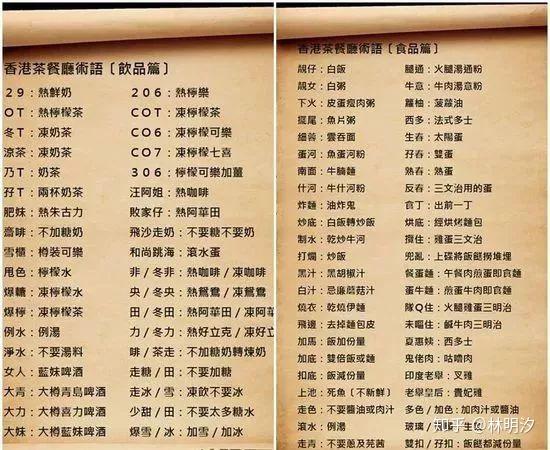 香港茶餐廳術語〔飲品篇〕
29：熱鮮奶 206：熱檸樂
OT：熱檸檬茶 COT：凍檸檬茶
冬T：凍奶茶 CO6：凍檸檬可樂
涼茶：凍奶茶 CO7：凍檸檬七喜
乃T：奶茶 306：檸檬可樂加薑
孖T：兩杯奶茶 汪阿姐：熱咖啡
肥妹：熱朱古力 敗家仔：熱阿華田
齋啡：不加糖奶 飛沙走奶：不要糖不要奶
雪櫃：樽裝可樂 和尚跳海：滾水蛋
甩色：檸檬水 非/冬非：熱咖啡/凍咖啡
爆糖：凍檸檬水 央/冬央：熱鴛鴦/凍鴛鴦
爆檸：凍檸檬茶 田/冬田：熱阿華田/凍阿華
例水：例湯 力/冬力：熱好立克/凍好立克
淨水：不要湯料 啡/茶走：不加糖奶轉煉奶
女人：藍妹啤酒 走糖/田：不加糖
大青：大樽青島啤酒 走冰/雪：凍飲不要冰
大力：大樽喜力啤酒 少甜/田：不要太多糖水
大妹：大樽藍妹啤酒 爆雪/冰：加雪/加冰
香港茶餐廳術語〔食品篇〕
靚仔：白飯 腿通：火腿湯通粉
靚女：白粥 牛意：牛肉湯意粉
下火：皮蛋瘦肉粥 蘿柚：菠蘿油
擺尾：魚片粥 西多：法式多士
細蓉：雲吞面 生春：太陽蛋
蛋河：魚蛋河粉 孖春：雙蛋
南面：牛腩麵 熟春：熟蛋
什河：牛什河粉 反春：三文治用的蛋
炸麵：油炸鬼 食丁：出前一丁
炒底：白飯轉炒飯 烘底：經烘烤麵包
制水：乾炒牛河 㩒住：雞蛋三文治
打爛：炒飯 兜亂：上碟將飯餸撈堆埋
黑汁：黑胡椒汁 餐蛋麵：午餐肉煎蛋即食麵
白汁：忌廉蘑菇汁 蛋牛麵：煎蛋牛肉即食麵
燒衣：乾燒伊麵 隊Q住：火腿雞蛋三明治
飛邊：去掉麵包皮 未嘔住：鹹牛肉三明治
加馬：飯加份量 夏惠姨：西多士
加底：雙倍飯或麵 鬼佬肉：咕嚕肉
扣底：飯減份量 印度老舉：叉雞
上池：死魚〔不新鮮〕 老舉皇后：貴妃雞
走色：不要醬油或肉汁 多色/加色：加肉汁或醬油
滾水：例湯 玻璃/
走青：不要蔥及芫茜 雙扣/孖扣：飯餸都減份量
知乎 @林明汐